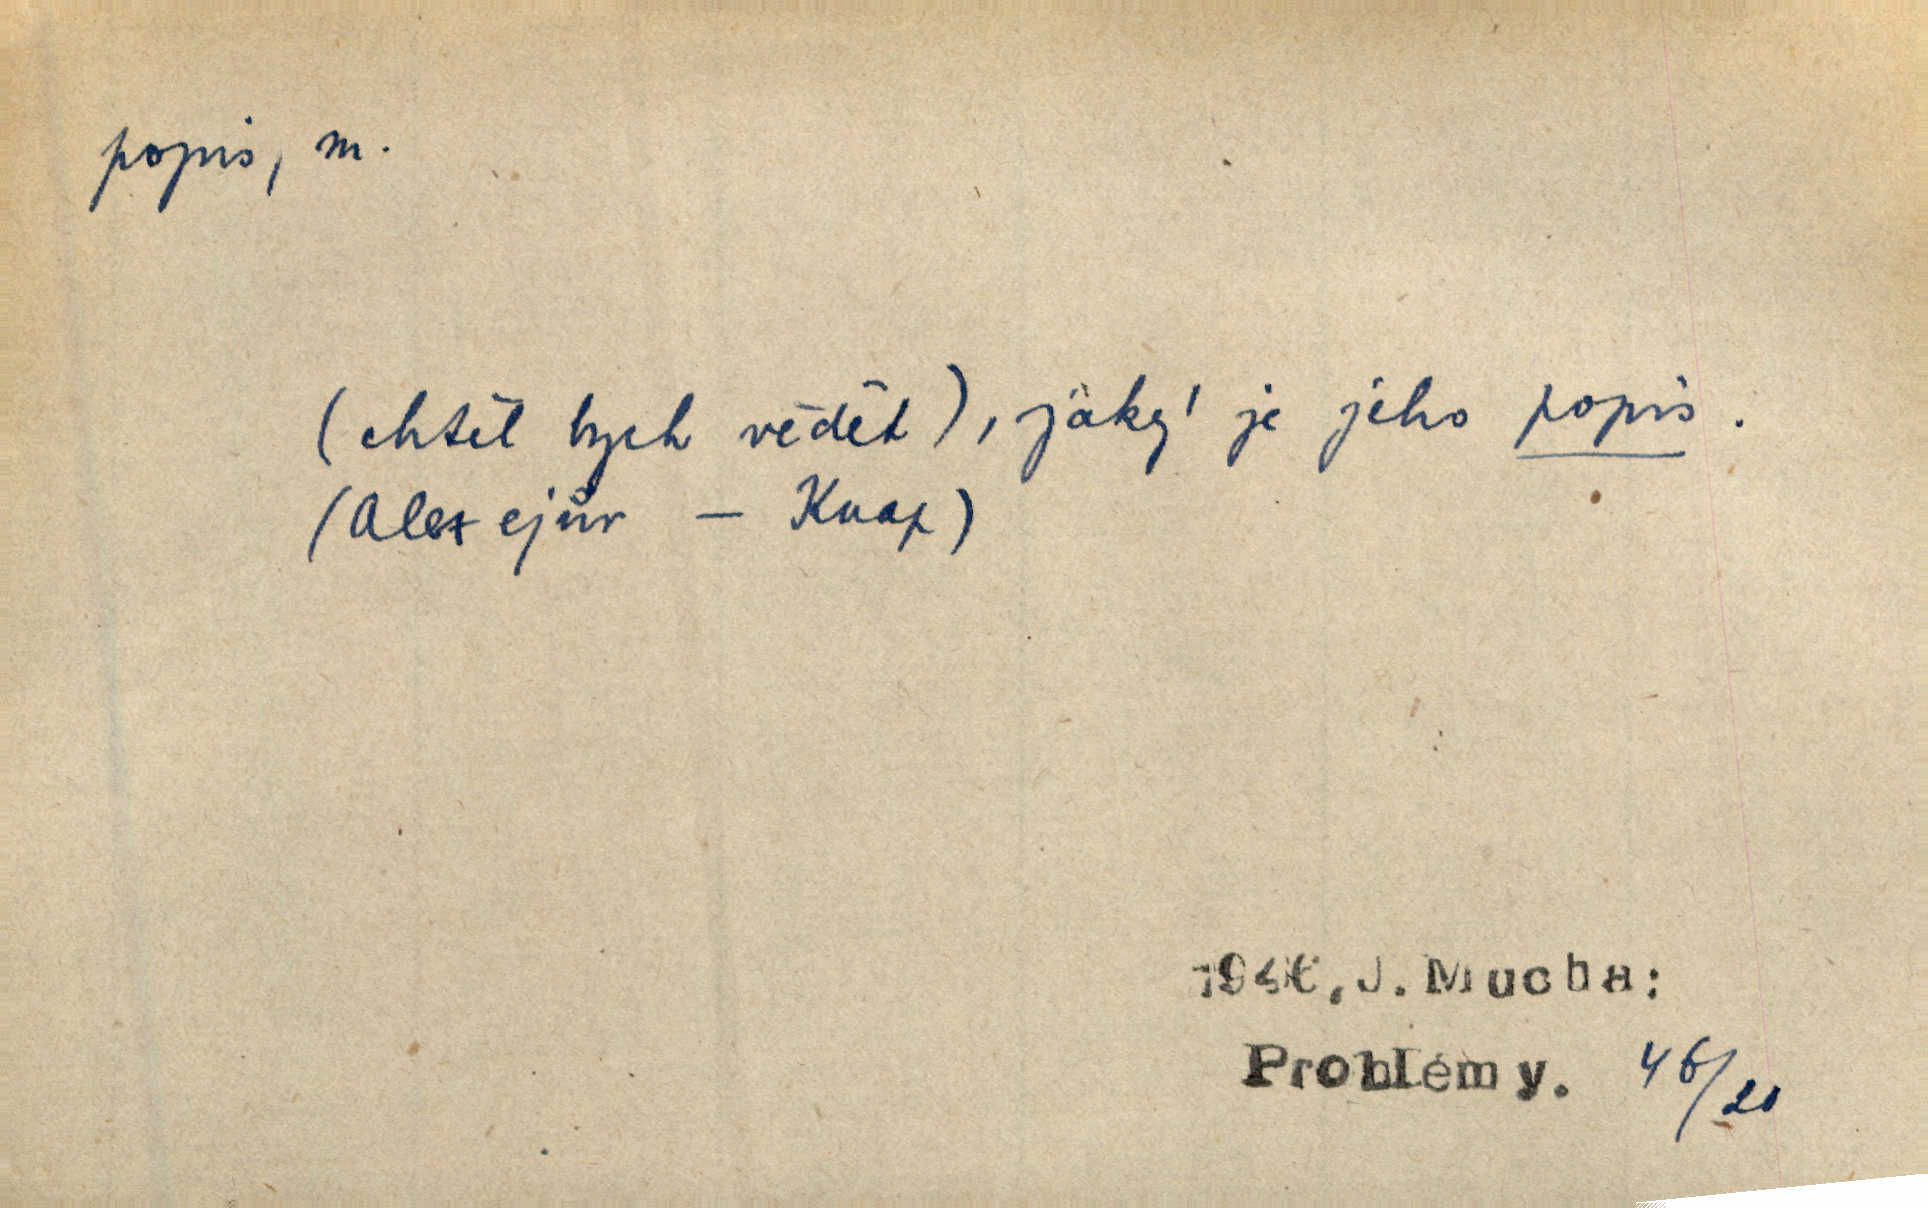 popis, m.
(chtěl bych vědět), jaký je jeho popis.
(Alexejův — Knap)
1946, J. Mucha:
Problémy. 46/20